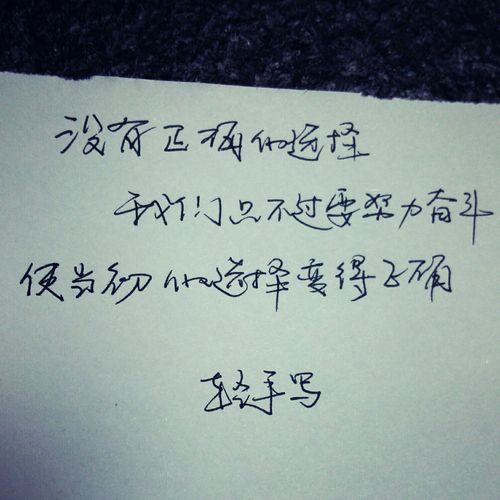 没有正确的选择
我们只不过要努力奋斗
使当初的选择变得正确
轻手写